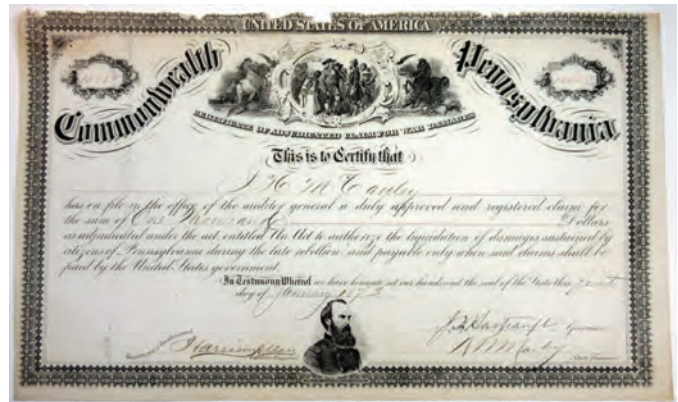 UNITED STATES OF AMERICA
Commonwealth Pennsylvania
CERTIFICATE OF ADJUDICATED CLAIM FOR WAR DAMAGES
This is to Certify that
J H McCauley
has on file in the office of the auditor general a duly approved and registered claim for
the sum of One Thousand Dollars
as adjudicated under the act, entitled An Act to authorize the liquidation of damages sustained by
citizens of Pennsylvania during the late rebellion and payable only when said claims shall be
paid by the United States government.
In Testimony Whereof we have hereunto set our hands and the seal of the State this
day of January
Harrison Allen
J F Hartranft Governor
R W Mackey